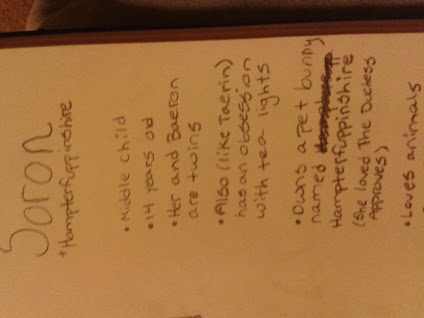 Soron
+ Hampterfuppinshire
• Middle child
• 14 years od
• Her and Baeron
are twins
• Also (like Taerin)
has an obsession
with tea lights
• Owns a pet bunny
named
Hampterfuppinshire
(She loved The Duchess
Approves)
• Loves animals